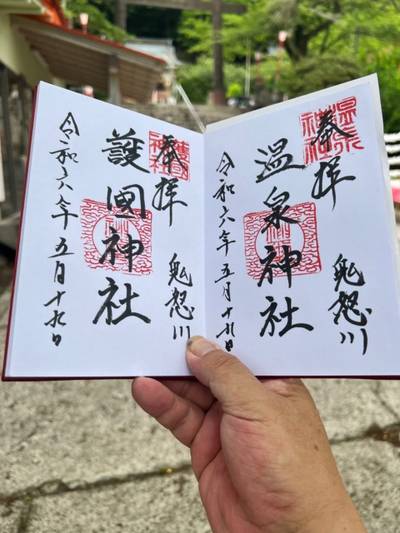 奉拝
鬼怒川
温泉神社
令和六年五月十九日
奉拝
鬼怒川
護國神社
令和六年五月十九日